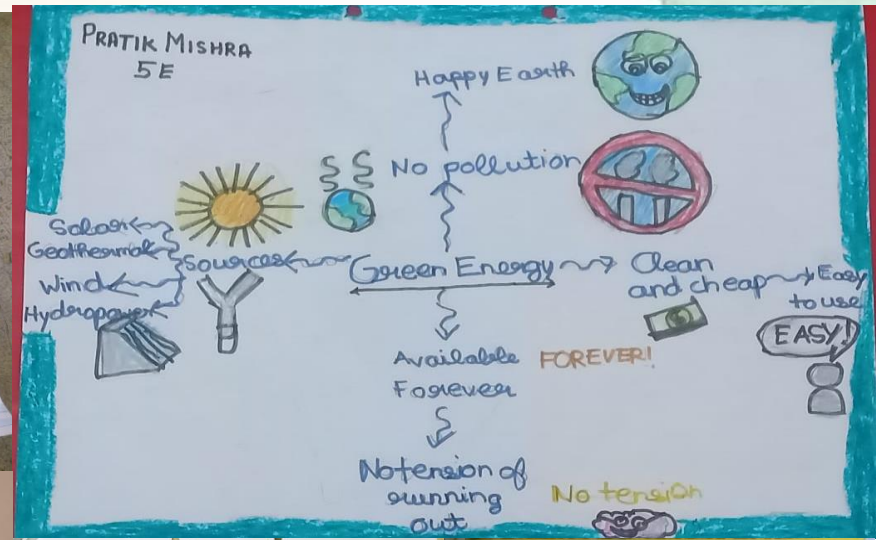 PRATIK MISHRA
5E
Happy Earth
No pollution
Solar
Geothermal
Wind
Hydropower
Sources
Green Energy
Clean
and cheap
Easy
to use
EASY!
Available
Forever
FOREVER!
No tension of
running
out
No tension